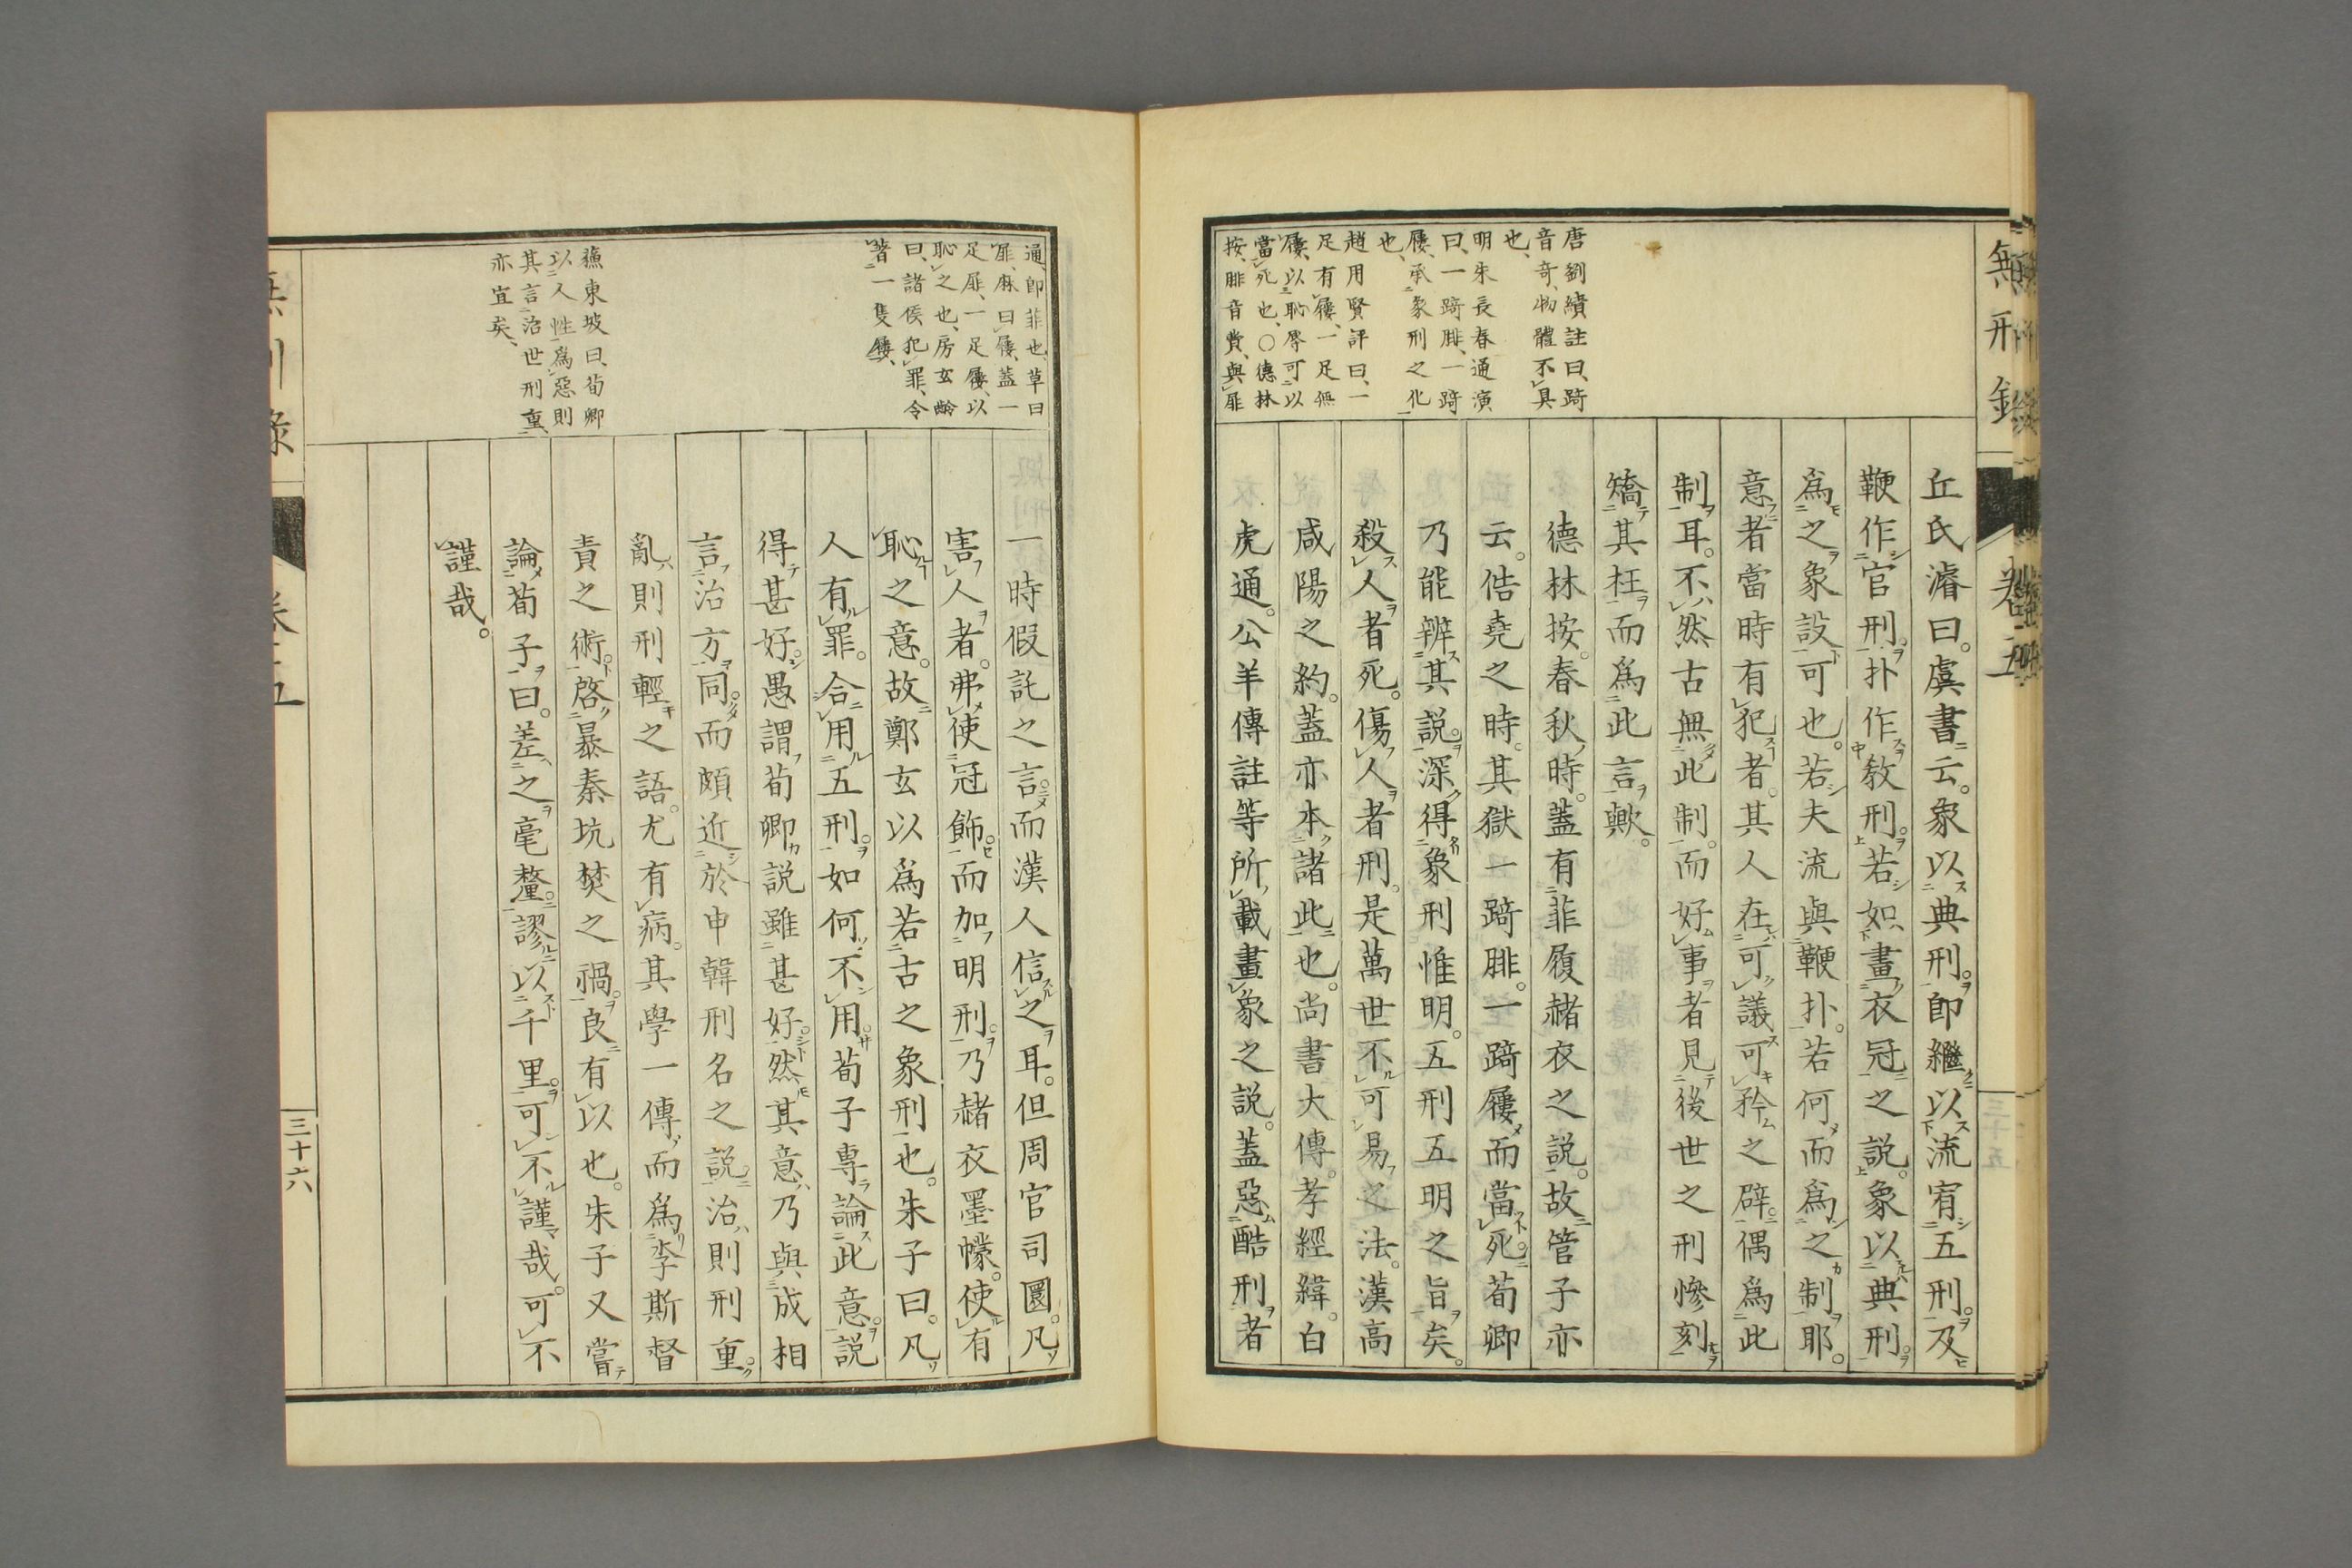 無刑録
卷五
唐劉績註曰、踦
音奇、物體不具
也、
明朱長春通演
曰、一踦腓、一踦
屨、承象刑之化
也、
趙用賢評曰、一
足有屨、一足無
屨、以恥辱可以
當死也、〇德林
按、腓音費、與屝
丘氏濬曰。虞書云。象以典刑。卽繼以流宥五刑。及
鞭作官刑。扑作教刑。若如畫衣冠之説。象以典刑。
爲之象設可也。若夫流與鞭扑。若何而爲之制耶。
意者當時有犯者。其人在可議可矜之辟。偶爲此
制耳。不然古無此制。而好事者見後世之刑慘刻。
矯其枉而爲此言歟。
德林按。春秋時。蓋有菲履赭衣之説。故管子亦
云。俈堯之時。其獄一踦腓。一踦屨而當死。荀卿
乃能辨其説。深得象刑惟明。五刑五明之旨矣。
殺人者死。傷人者刑。是萬世不可易之法。漢高
咸陽之約。蓋亦本諸此也。尚書大傳。孝經緯。白
虎通。公羊傳註等所載畫象之説。蓋惡酷刑者
通、卽菲也、草曰
屝、麻曰屨、蓋一
足屝、一足屨、以
恥之也、房玄齡
曰、諸侯犯罪、令
著一隻屨、
蘓東坡曰、荀卿
以人性爲惡則
其言治世刑重、
亦宜矣、
一時假託之言。而漢人信之耳。但周官司圜。凡
害人者。弗使冠飾。而加明刑。乃赭衣墨幪。使有
恥之意。故鄭玄以爲若古之象刑也。朱子曰。凡
人有罪。合用五刑。如何不用。荀子專論此意。説
得甚好。愚謂荀卿説雖甚好。然其意乃與成相
言治方同。而頗近於申韓刑名之説。治則刑重。
亂則刑輕之語。尤有病。其學一傳而爲李斯督
責之術。啓暴秦坑焚之禍。良有以也。朱子又嘗
論荀子曰。差之毫釐。謬以千里。可不謹哉。可不
謹哉。
三十六